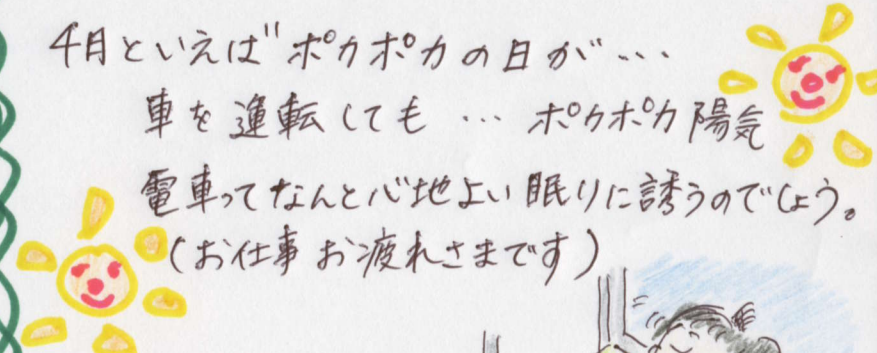 4月といえば ポカポカの日が…
車を運転しても … ポカポカ陽気
電車ってなんと心地よい眠りに誘うのでしょう。
(お仕事お疲れさまです)